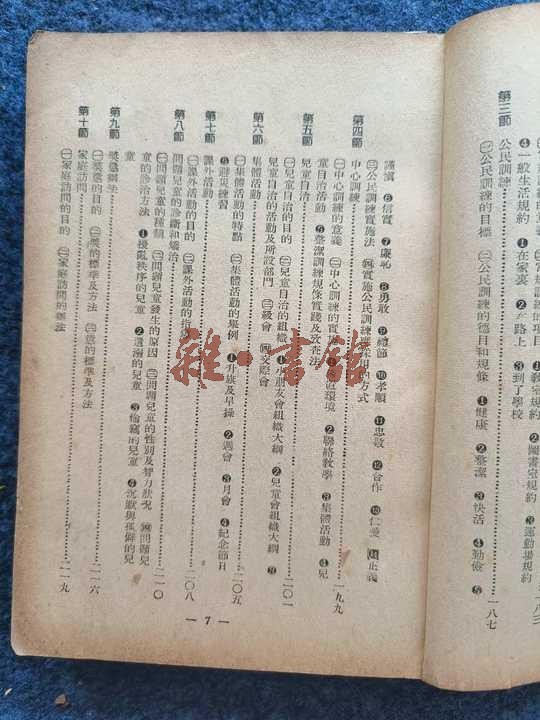 第三節
④一般生活規約 ❶在家裏 ❷在路上 ❸到了學校
公民訓練
㊀公民訓練的目標 ㊁公民訓練的德目和規條 ❶健康 ❷整潔 ❸快活 ❹勤儉 ❺
一八七
謹慎 ❻信實 ❼廉恥 ❽勇敢 ❾禮節 ❿孝順 ⓫忠敬 ⓬合作 ⓭仁愛 ⓮正義
㊂公民訓練實施法 ㊃實施公民訓練應採用的方式
第四節 中心訓練 一九九
㊀中心訓練的意義 ㊁中心訓練的實施 環境 ❷聯絡教學 ❸集體活動 ❹兒
童自治活動 ❺整潔訓練規條實踐及攷查法
第五節 兒童自治 二〇一
㊀兒童自治的目的 ㊁兒童自治的組織 ❶小朋友會組織大綱 ❷兒童會組織大綱 ❸
兒童自治的活動及所設部門 ㊂級會 ㊃交際會
第六節 集體活動 二〇五
㊀集體活動的特點 ㊁集體活動的舉例 ❶升旗及早操 ❷週會 ❸月會 ❹紀念節日
❺避災練習
第七節 課外活動 二〇八
㊀課外活動的目的 ㊁課外活動的指
第八節 問題兒童的診斷和矯治 二一〇
㊀問題兒童的種類 ㊁問題兒童發生的原因 ㊂問題兒童的性別及智力狀況 ㊃問題兒
童的診治方法 ❶擾亂秩序的兒童 ❷退縮的兒童 ❸偷竊的兒童 ❹沉默與孤僻的兒
童
第九節 獎懲學生 二一六
㊀獎懲的目的 ㊁獎的標準及方法 ㊂懲的標準及方法
第十節 家庭訪問 二一九
㊀家庭訪問的目的 ㊁家庭訪問的辦法
— 7 —
雜·書館